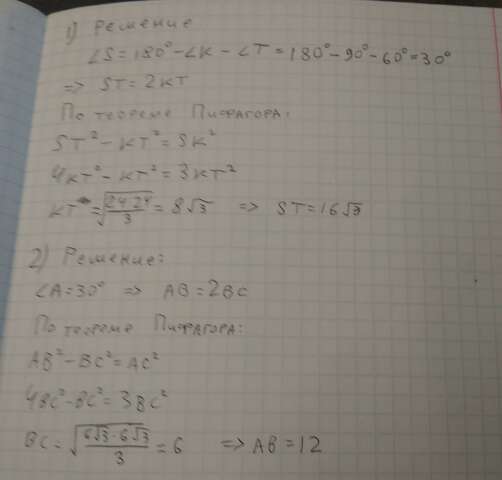 1) Решение
∠S=180°-∠K-∠T=180°-90°-60°=30°
=> ST=2KT
По теореме Пифагора:
ST²-KT²=SK²
4KT²-KT²=3KT²
KT=√(24·24/3)=8√3 => ST=16√3
2) Решение:
∠A=30° => AB=2BC
По теореме Пифагора:
AB²-BC²=AC²
4BC²-BC²=3BC²
BC=√(6√3·6√3/3)=6 => AB=12